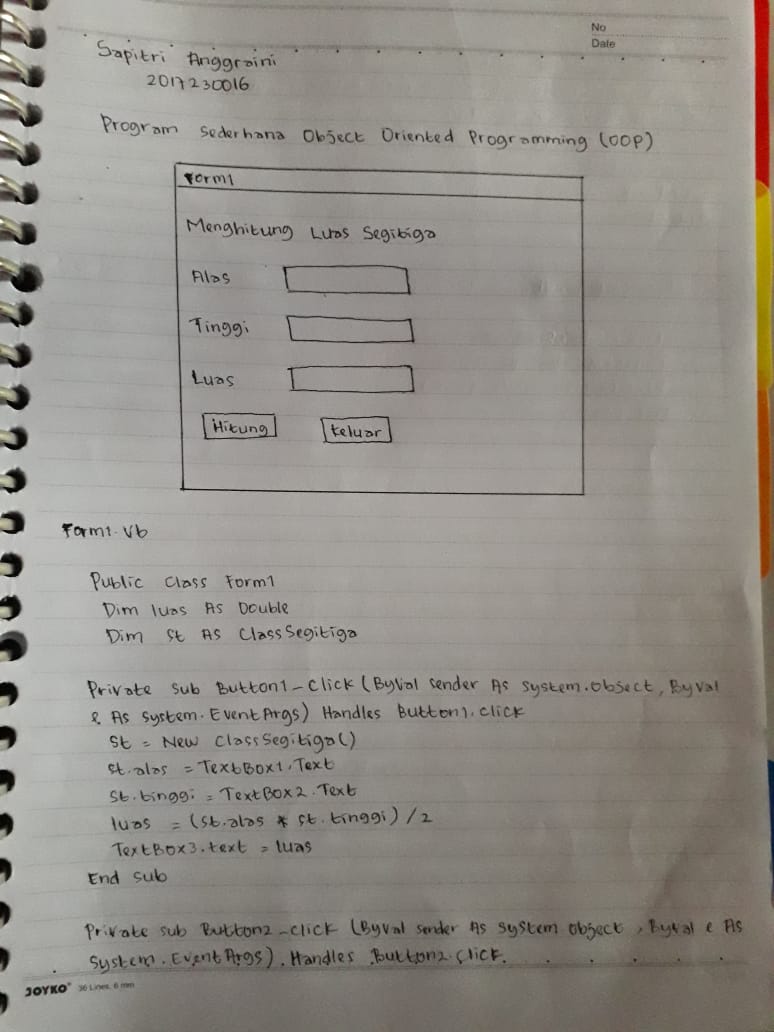 No
Date
Sapitri Anggraini
2017230016
Program Sederhana Object Oriented Programming (OOP)
Form1
Menghitung Luas Segitiga
Alas
Tinggi
Luas
Hitung
Keluar
Form1.Vb
Public Class Form1
Dim luas As Double
Dim st As ClassSegitiga
Private Sub Button1_Click (ByVal sender As System.Object, ByVal
e As System.EventArgs) Handles Button1.Click
st = New ClassSegitiga()
st.alas = TextBox1.Text
st.tinggi = TextBox2.Text
luas = (st.alas * st.tinggi) / 2
TextBox3.text = luas
End Sub
Private sub Button2_Click (ByVal sender As System Object, ByVal e As
System.EventArgs). Handles Button2.Click.
JOYKO 36 Lines, 6 mm